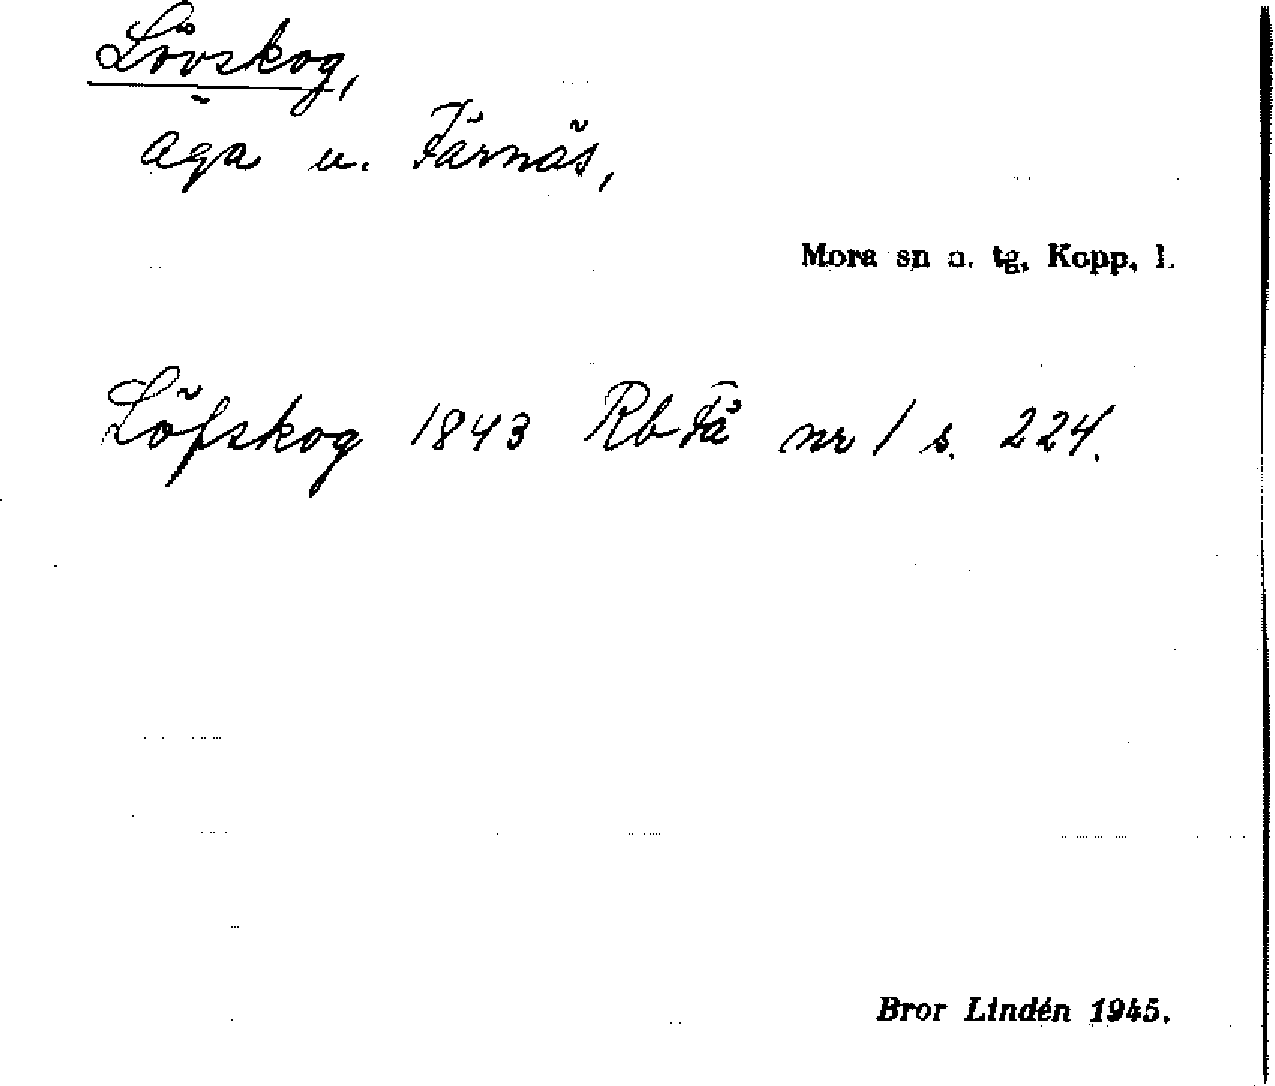 Lövskog,
äga u. Färnäs,
Mora sn o. tg, Kopp. l.
Löfskog 1843 Rb Fä nr 1 s. 224.
Bror Lindén 1945.